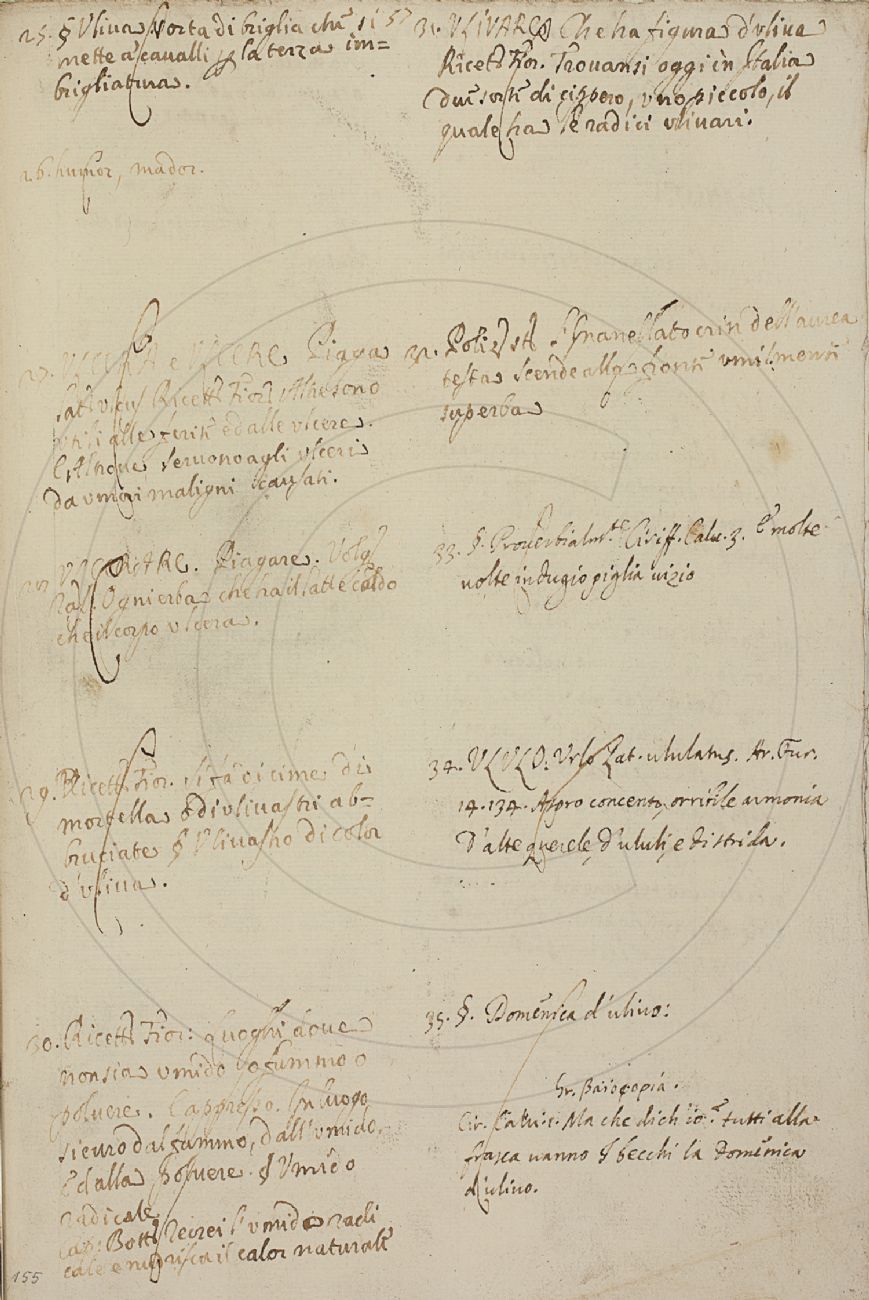 25. § Uliva sorta di briglia che si
mette a' cavalli per la terza im=
brigliatura.
26. humor, mador.
27. VLCERA e VLCERE. Piaga
Latt. vlcus Ricett. Fior. Alhe sono
utili alle ferite ed alle vlcere.
E altroue, seruono agli vlceri
da umori maligni causati.
VLCERARE. Piagare. Volg.
Ras. Ogni erba che ha il latte caldo
che il corpo vlcera.
29. Ricett. Fior. di cime di
mortella e di vlivastri ab=
bruciate § Vlivastro di color
d'vliva.
30. Ricett. Fior: luoghi doue
non sia vmido o fummo o
poluere. E appresso. In luogo
sicuro dal fummo, dall'vmido,
E dalla poluere § Vmido
radicale.
Cap. Bott. Recrei l'vmido radi
cale e nutrisca il calor naturale
155
57
31. VLIVARE Che ha figura d'vliva
Ricett. Fior. Trouansi oggi in Italia
due sorte di cippero, vno piccolo, il
quale ha le radici vlivari.
32. Poliz. st. L'inanellato crin dell'aurea
testa Scende alla fronte vmilmente
superba
33. §. Prouerbialmte Ciriff. Calu. 3. E molte
uolte indugio piglia uizio
34. VLVLO. Vrlo Lat. ululatus. Ar. Fur.
14.134. Aspro concento, orribile armonia
D'alte querele, d'ululi, e di strida.
35. §. Domenica d'uliuo:
Gr. Βαϊοφορία.
Cir. Calu. 1. Ma che dich'io? tutti alla
frasca uanno § becchi la Domenica
d'uliuo.